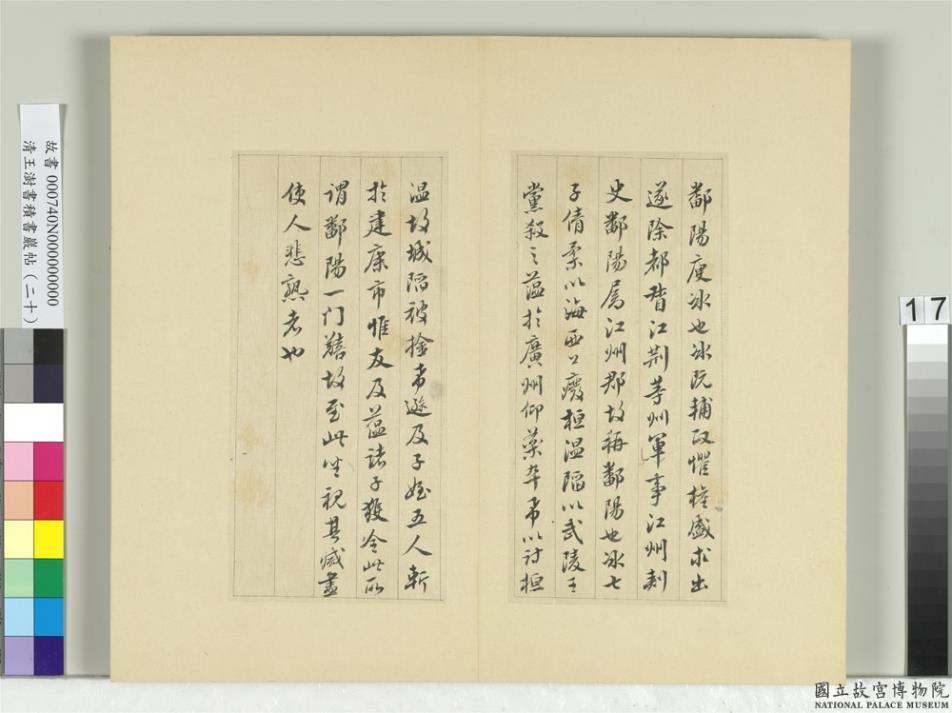 鄱陽庾冰也冰既輔政懼權盛求出
遂除都督江荊等州軍事江州刺
史鄱陽屬江州郡故稱鄱陽也冰七
子倩柔以海西公廢桓溫陷以武陵王
黨殺之蘊於廣州仰藥卒希以討桓
温故城陷被擒希邈及子姪五人斬
於建康市惟友及蘊諸子獲全此所
謂鄱陽一门 故至此 視其滅盡
使人悲 者也
故書 000740N000000000
清王澍書積書巖帖(二十)
17
國立故宮博物院
NATIONAL PALACE MUSEUM